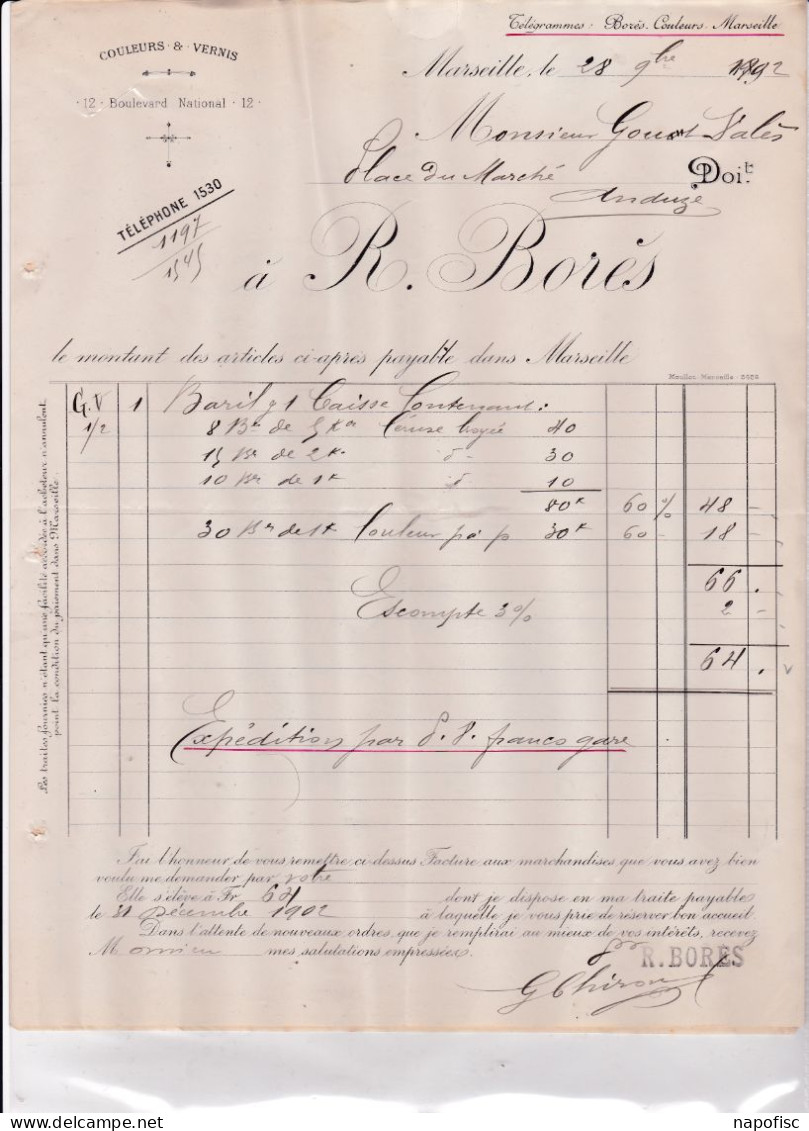 Télégrammes: Borès. Couleurs. Marseille
COULEURS & VERNIS
12 · Boulevard National · 12
Marseille, le 28 9bre 1902
Monsieur
Place du Marché Doit
Anduze
TÉLÉPHONE 1530
1197
1545
à R. Borès
le montant des articles ci-après payable dans Marseille
Moullot-Marseille-5952
G.V 1 Baril & 1 Caisse Contenant:
1/2 8 Btes de 5 Kos Céruse broyée 40
15 Btes de 2k d° 30
10 Btes de 1k d° 10
80k 60% 48 -
30 Btes de 1k Couleur 30k 60 - 18 -
66 .
Escompte 3% 2 -
64 .
Expédition par P. V. franco gare
Les traites fournies n'étant qu'une facilité accordée à l'acheteur n'annulent
point la condition du paiement dans Marseille.
J'ai l'honneur de vous remettre ci-dessus Facture aux marchandises que vous avez bien
voulu me demander par votre
Elle s'élève à Fr. 64 dont je dispose en ma traite payable
le 31 Décembre 1902 à laquelle je vous prie de réserver bon accueil
Dans l'attente de nouveaux ordres, que je remplirai au mieux de vos intérêts, recevez
Monsieur mes salutations empressées.
pr R. BORÈS
G Thiron
napofisc